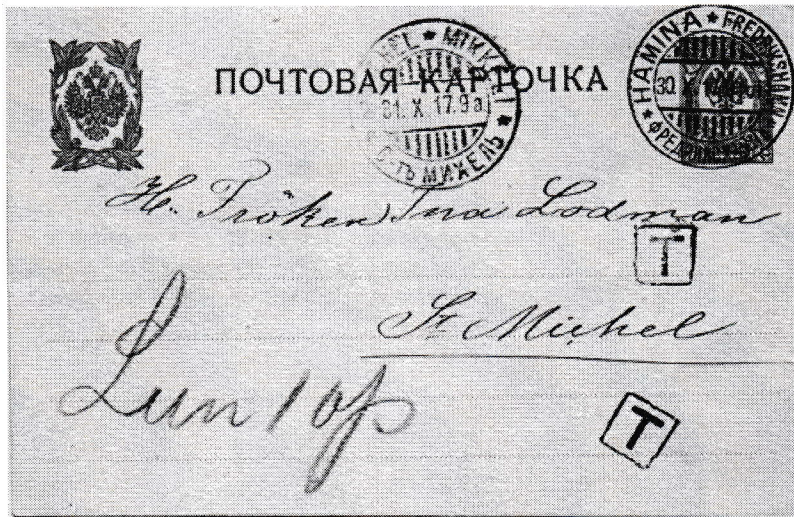 ПОЧТОВАЯ КАРТОЧКА
MIKKELI
31. X. 17. 9 a
МИХЕЛЬ
HAMINA ★ FREDRIKSHAMN
30. X. 17
H. Fröken Ina Lodman
T
St Michel
Lun 10 p
T